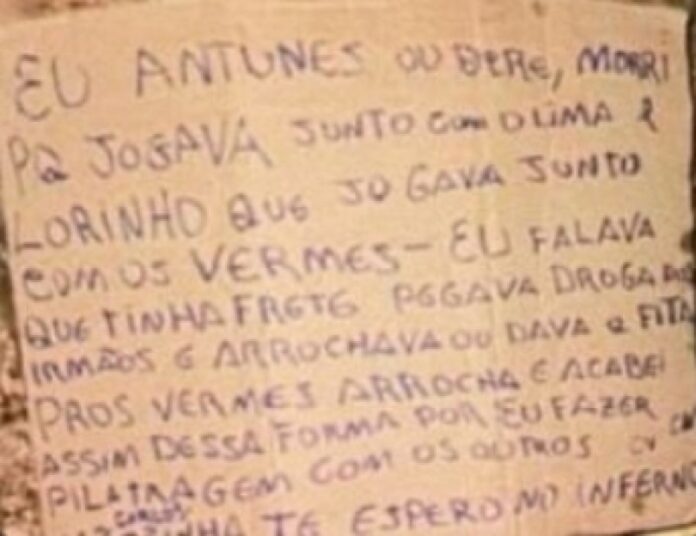 EU ANTUNES OU DERE, MORRI
PQ JOGAVA JUNTO COM D LIMA E
LORINHO QUE JOGAVA JUNTO
COM OS VERMES - EU FALAVA
QUE TINHA FRETE PEGAVA DROGA DOS
IRMÃOS E ARROCHAVA OU DAVA A FITA
PROS VERMES ARROCHA E ACABEI
ASSIM DESSA FORMA POR EU FAZER
PILATRAGEM COM OS OUTROS
CARLOS
TE ESPERO NO INFERNO